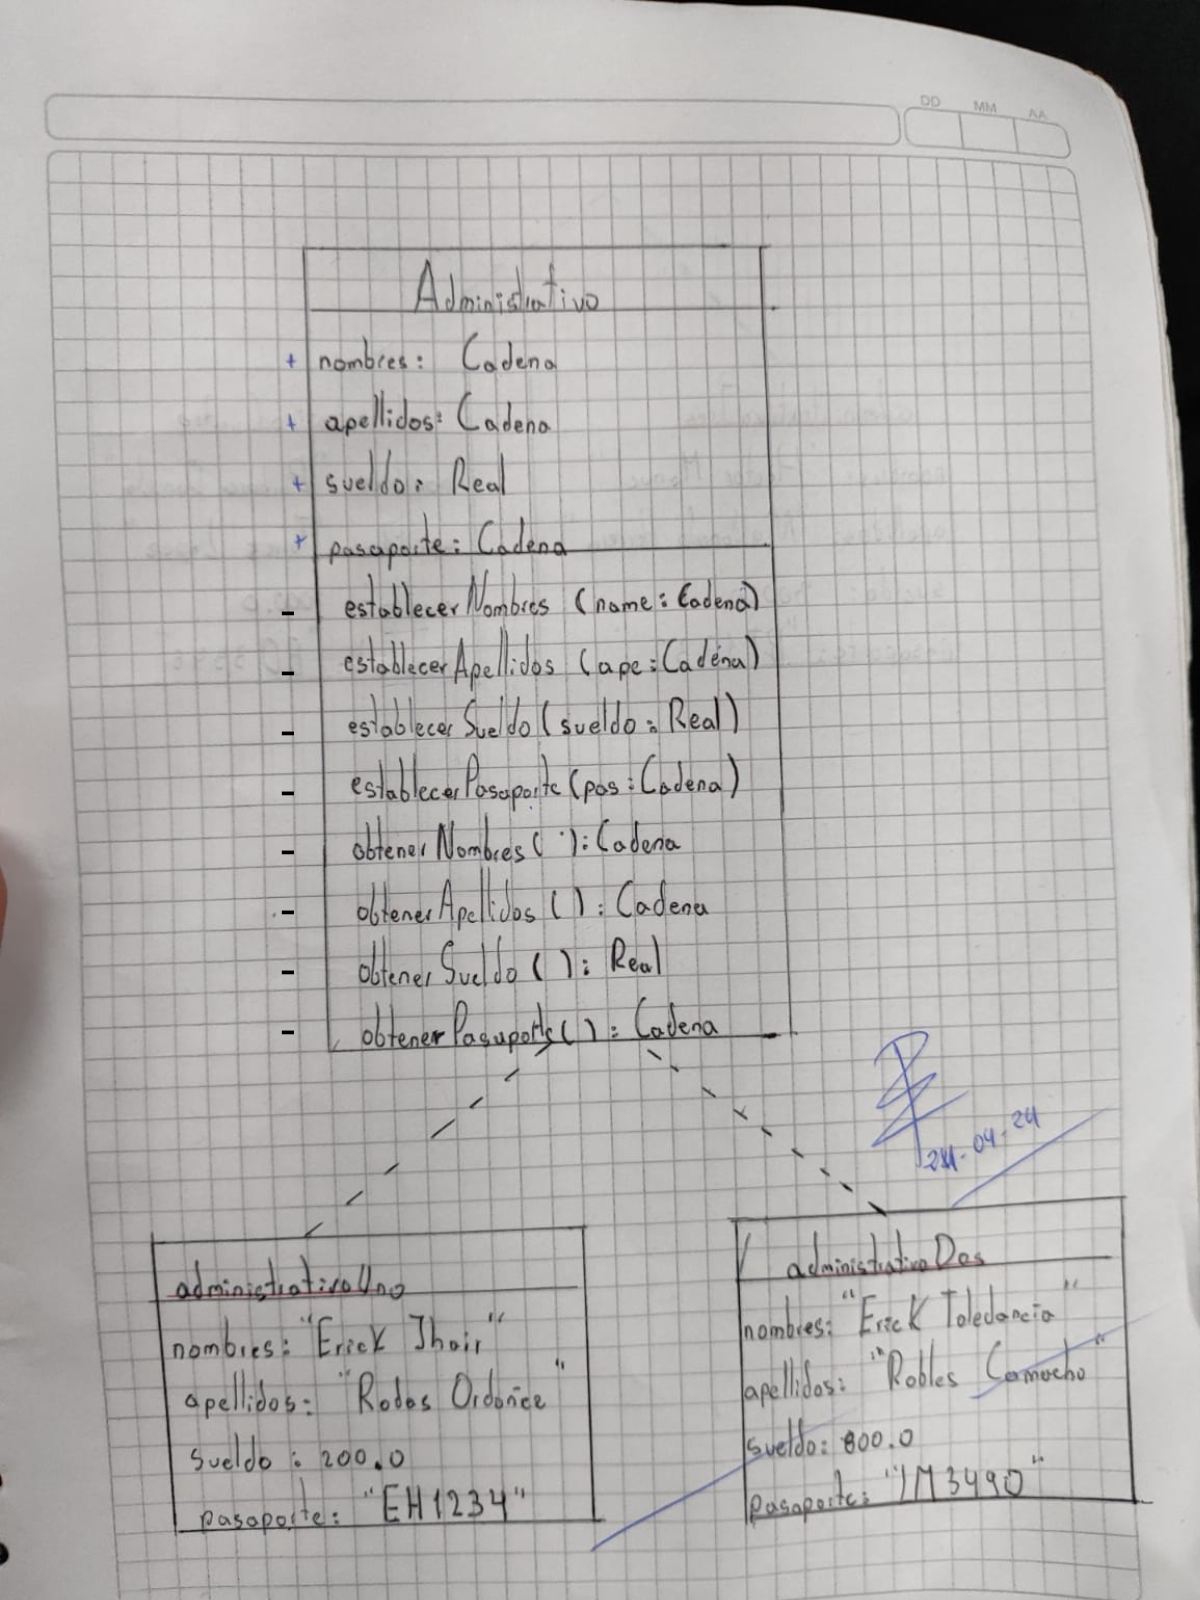 DD MM AA
Administrativo
+ nombres: Cadena
+ apellidos: Cadena
+ sueldo: Real
+ pasaporte: Cadena
- establecerNombres (name: Cadena)
- establecerApellidos (ape: Cadena)
- establecerSueldo (sueldo: Real)
- establecerPasaporte (pas: Cadena)
- obtenerNombres( ): Cadena
- obtenerApellidos ( ): Cadena
- obtenerSueldo ( ): Real
- obtenerPasaporte( ): Cadena
24-04-24
administrativoUno
nombres: "Erick Jhair"
apellidos: "Rodas Ordoñce"
sueldo: 200.0
pasaporte: "EH1234"
administrativoDos
nombres: "Erick Toledancia"
apellidos: "Robles Camocho"
sueldo: 800.0
pasaporte: "IM3490"